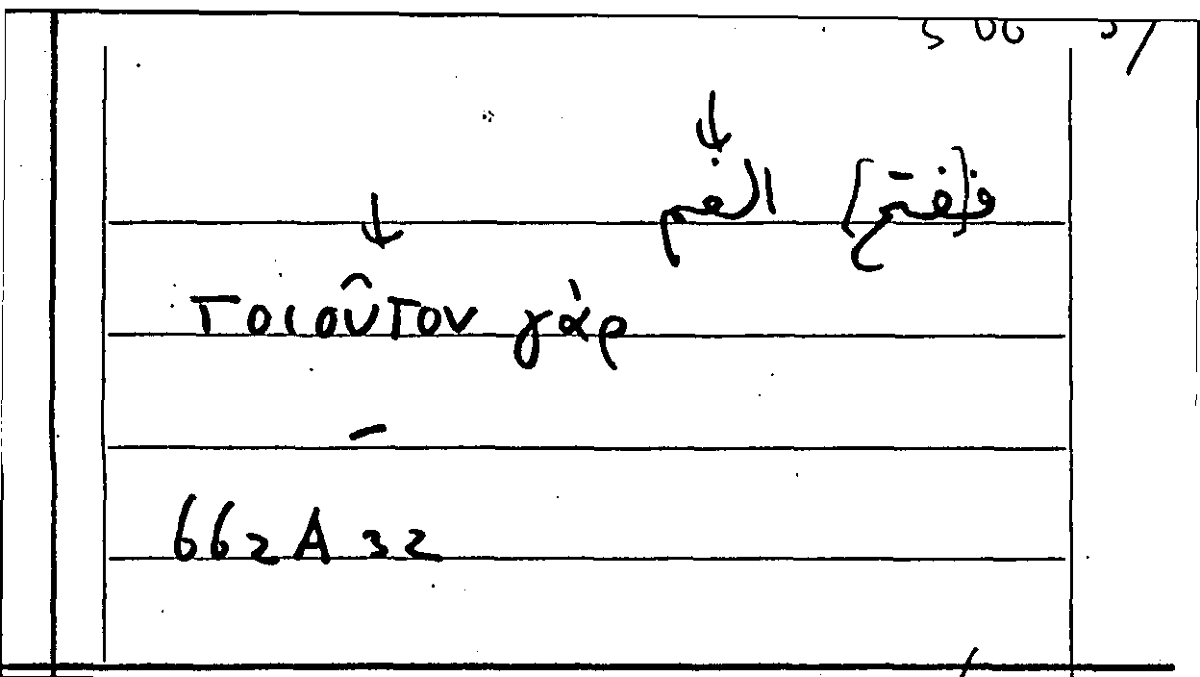 ف[فتح] الفم
τοιοῦτον γὰρ
662A32